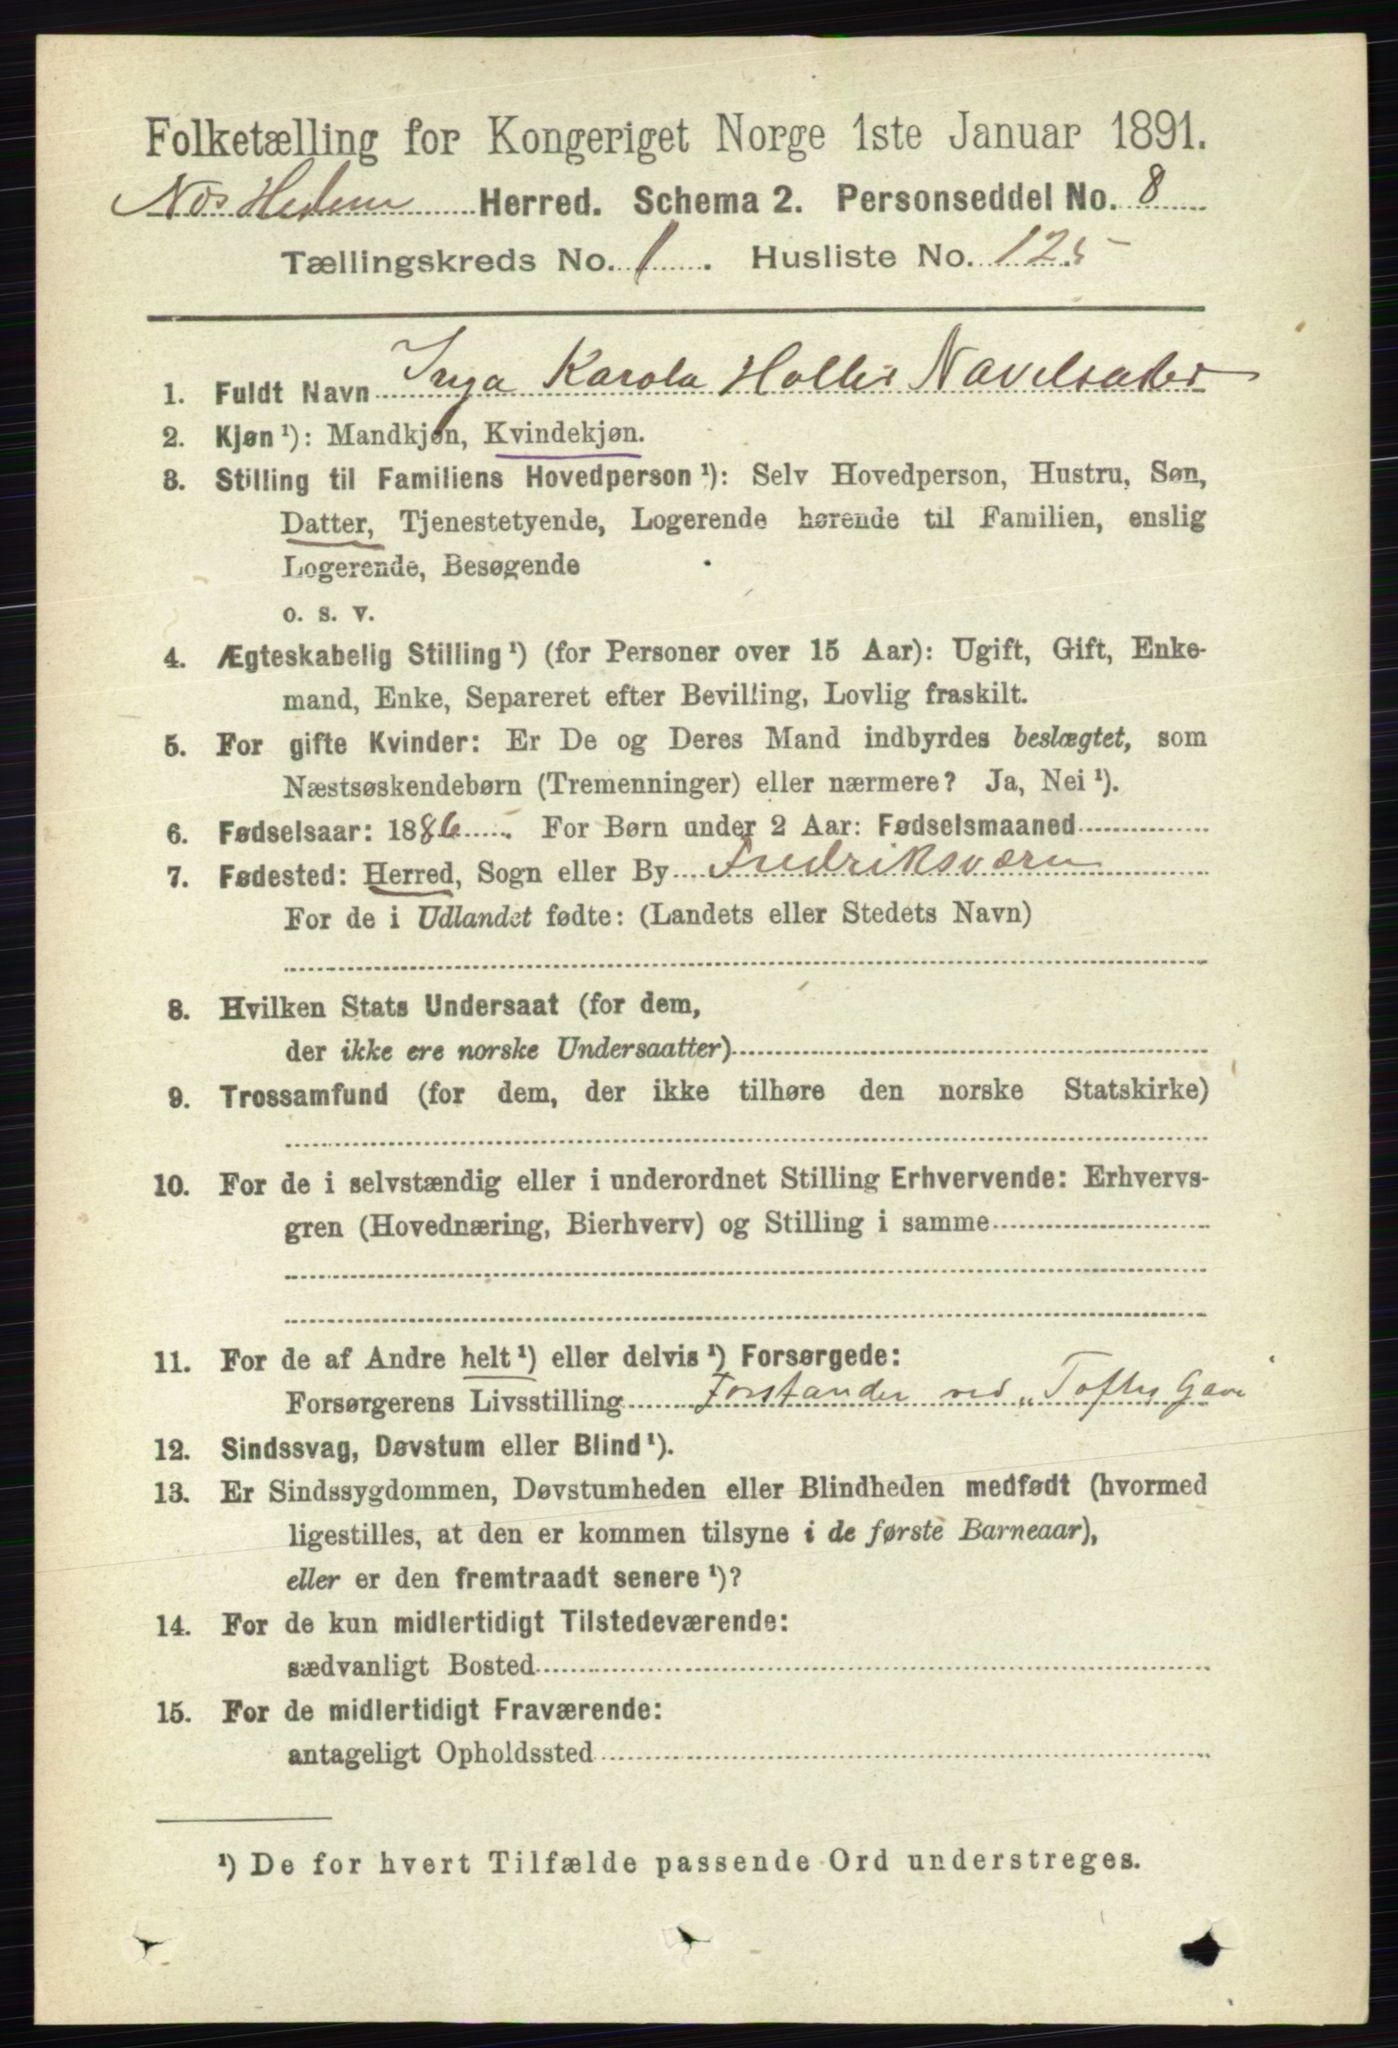 Folketælling for Kongeriget Norge 1ste Januar 1891.
Nes Hedem Herred. Schema 2. Personseddel No. 8
Tællingskreds No. 1. Husliste No. 125
1. Fuldt Navn Inga Karola Holler
2. Kjøn ¹): Mandkjøn, Kvindekjøn.
3. Stilling til Familiens Hovedperson ¹): Selv Hovedperson, Hustru, Søn,
Datter, Tjenestetyende, Logerende hørende til Familien, enslig
Logerende, Besøgende
o. s. v.
4. Ægteskabelig Stilling ¹) (for Personer over 15 Aar): Ugift, Gift, Enke-
mand, Enke, Separeret efter Bevilling, Lovlig fraskilt.
5. For gifte Kvinder: Er De og Deres Mand indbyrdes beslægtet, som
Næstsøskendebørn (Tremenninger) eller nærmere? Ja, Nei ¹).
6. Fødselsaar: 1886. For Børn under 2 Aar: Fødselsmaaned
7. Fødested: Herred, Sogn eller By Fredriksværn
For de i Udlandet fødte: (Landets eller Stedets Navn)
8. Hvilken Stats Undersaat (for dem,
der ikke ere norske Undersaatter)
9. Trossamfund (for dem, der ikke tilhøre den norske Statskirke)
10. For de i selvstændig eller i underordnet Stilling Erhvervende: Erhvervs-
gren (Hovednæring, Bierhverv) og Stilling i samme
11. For de af Andre helt ¹) eller delvis ¹) Forsørgede:
Forsørgerens Livsstilling Forstander ved „Toftes Gave
12. Sindssvag, Døvstum eller Blind ¹).
13. Er Sindssygdommen, Døvstumheden eller Blindheden medfødt (hvormed
ligestilles, at den er kommen tilsyne i de første Barneaar),
eller er den fremtraadt senere ¹)?
14. For de kun midlertidigt Tilstedeværende:
sædvanligt Bosted
15. For de midlertidigt Fraværende:
antageligt Opholdssted
¹) De for hvert Tilfælde passende Ord understreges.